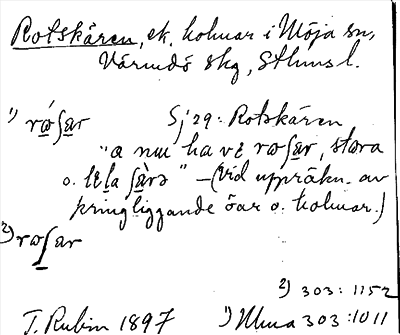 Rotskären, ek. holmar i Möja sn,
Värmdö skg, Sthms l.
1) rώʃar Sj 29: Rotskären
"a nu ha vɛ rωʃar, stora
o. lɛla ʃàrə" – (vid uppräkn. av
kringliggande öar o. holmar.)
2) rωʃar
2) 303: 1152
T. Rubin 1897 1) 303:1011